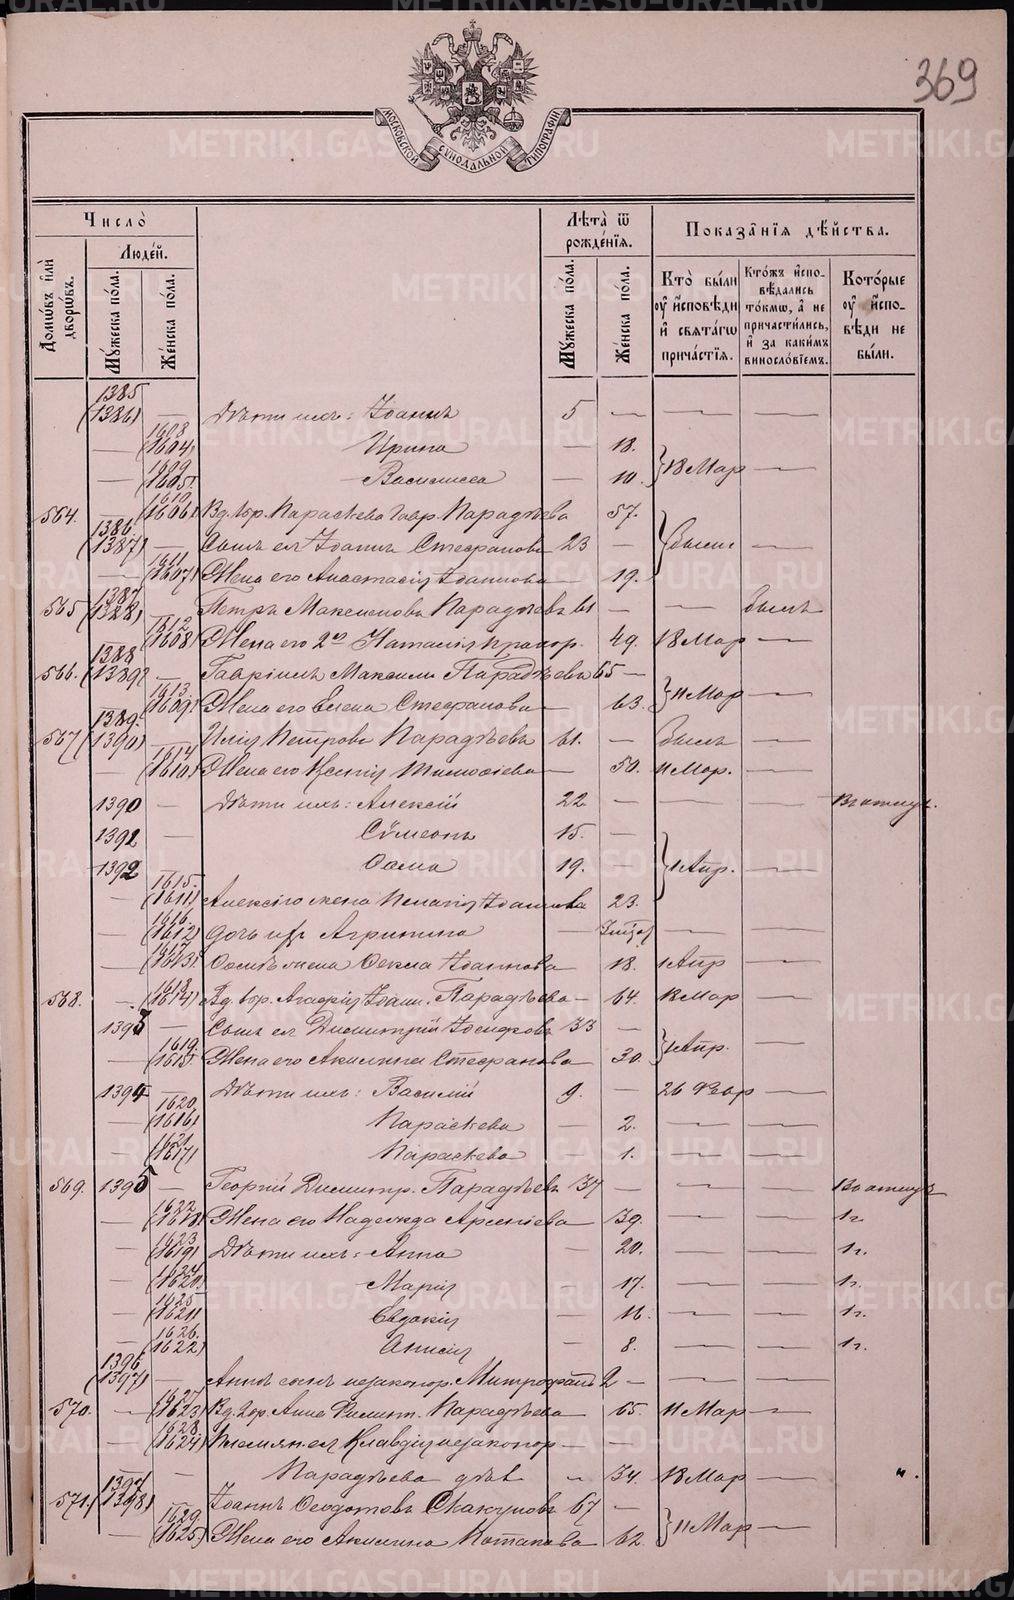 369
МОСКОВСКОЙ СѴНОДАЛЬНОЙ ТИПОГРАФІИ
Число̀
Домѡ́въ и҆лѝ дворѡ́въ.
Люде́й.
Мꙋ́жеска по́ла.
Же́нска по́ла.
Лѣ́та ѿ рожде́нїѧ.
Мꙋ́жеска по́ла.
Же́нска по́ла.
Показа̑нїѧ дѣ́йства.
Кто̀ бы́ли оу҆ и҆спо́вѣди и҆ свѧта́гѡ прича́стїѧ.
Кто́жъ и҆спо- вѣ́дались то́кмѡ, а҆ не причасти́лись, и҆ за каки́мъ винослѡ́вїемъ.
Кото́рые оу҆ и҆спо- вѣ́ди не бы́ли.
1385 (1386) — Дѣти ихъ: Іоаннъ 5 — — —
— 1608 (1604) Ирина — 18.
— 1609 (1605) Василиса — 10. } 18 Мар —
564. — 1610 (1606) Вд. Параскева Гавр. Парадѣева 57.
1386 (1387) — Сынъ ея Іоаннъ Стефановъ 23 — } были —
— 1611 (1607) Жена его Анастасія Іоаннова — 19.
565 1387 (1328) — Петръ Максимовъ Парадѣевъ 61 — — былъ
1612 (1608) Жена его 2ая Наталія 49. 18 Мар —
566. 1388 (1389) — Гавріилъ Максим. Парадѣевъ 65 —
1613 (1609) Жена его Елена Стефанова — 63. } 11 Мар —
567 1389. (1390) — Илія Петровъ Парадѣевъ 61. — былъ —
— 1614 (1610) Жена его Ксенія Тимоѳіева — 50. 11 Мар. —
1390 — Дѣти ихъ: Алексій 22 — — — В отлуч.
1391 — Сѷмеонъ 15. —
1392 — Ѳома 19. — } 1 Апр. —
— 1615. (1611) Алексія жена Пелагія Іоаннова 23.
— 1616. (1612) Дочь их Агрипина — — —
— 1617 (1613) Ѳомы жена Ѳекла Іоаннова — 18. 1 Апр —
568. — 1618 (1614) Вд. Агафія Іоан. Парадѣева — 64. 18 Мар —
1393 — Сынъ ея Димитрій Іосифовъ 33 —
— 1619. (1615) Жена его Акилина Стефанова 30. } 1 Апр. —
1394 — Дѣти ихъ: Василій 9. — 26 Февр —
— 1620 (1616) Параскева — 2. — —
— 1621 (1617) Параскева — 1. — —
569. 1395 — Георгій Димитр. Парадѣевъ 37 — — — Въ отлуч
— 1622 (1618) Жена его Надежда Арсеніева — 39. — — 1г.
— 1623 (1619) Дѣти ихъ: Анна — 20. — — 1г.
— 1624 (1620) Марія — 17. — — 1г.
— 1625 (1621) Евдокія — 16. — — 1г.
— 1626. (1622) Анисія — 8. — — 1г.
1396 (1397) — Анны сынъ незаконор. Митрофанъ 2 — — —
570. — 1627 (1623) Вд. Анна Димит. Парадѣева — 65. 11 Мар —
— 1628 (1624) Племян. ея Клавдія незаконор — —
— Парадѣева дѣв. „ 34. 18 Мар — „.
571. 1397 (1398) — Іоаннъ Ѳеодотовъ Скакуновъ 67 —
— 1629. (1625) Жена его Акилина Потапова 62. } 11 Мар —
METRIKI.GASO-URAL.RU